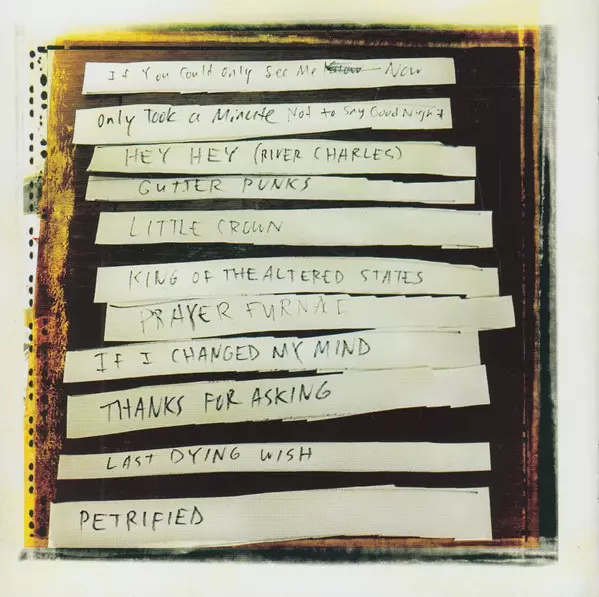 If You Could Only See Me Now
Only Took a Minute Not to Say Good Night
HEY HEY (RIVER CHARLES)
GUTTER PUNKS
LITTLE CROWN
KING OF THE ALTERED STATES
PRAYER FURNAC
IF I CHANGED MY MIND
THANKS FOR ASKING
LAST DYING WISH
PETRIFIED